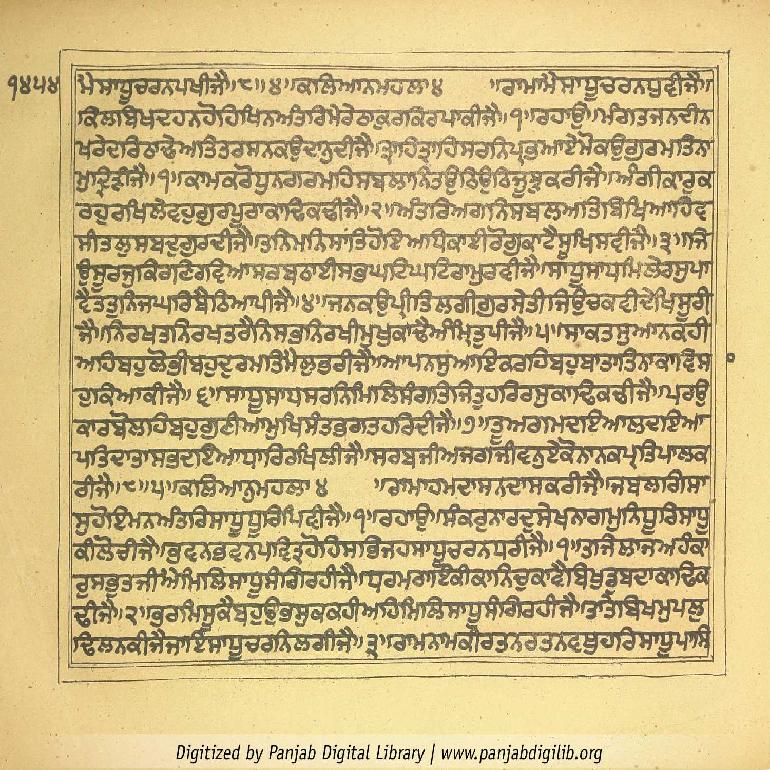 ੧੪੫੪
ਮੈਸਾਧੂਚਰਨਪਖੀਜੈ॥੮॥੪॥ਕਲਿਆਨਮਹਲਾ੪ ॥ਰਾਮਾਮੈਸਾਧੂਚਰਨਧੁਵੀਜੈ॥
ਕਿਲਬਿਖਦਹਨਹੋਹਿਖਿਨਅੰਤਰਿਮੇਰੇਠਾਕੁਰਕਿਰਪਾਕੀਜੈ॥੧॥ਰਹਾਉ॥ਮੰਗਤਜਨਦੀਨ
ਖਰੇਦਰਿਠਾਢੇਅਤਿਤਰਸਨਕਉਦਾਨੁਦੀਜੈ॥ਤ੍ਰਾਹਿਤ੍ਰਾਹਿਸਰਨਿਪ੍ਰਭਆਏਮੋਕਉਗੁਰਮਤਿਨਾ
ਮੁਦ੍ਰਿੜੀਜੈ॥੧॥ਕਾਮਕਰੋਧੁਨਗਰਮਹਿਸਬਲਾਨਿਤਉਠਿਉਠਿਜੂਝੁਕਰੀਜੈ॥ਅੰਗੀਕਾਰੁਕ
ਰਹੁਰਖਿਲੇਵਹੁਗੁਰਪੂਰਾਕਾਢਿਕਢੀਜੈ॥੨॥ਅੰਤਰਿਅਗਨਿਸਬਲਅਤਿਬਿਖਿਆਹਿਵ
ਸੀਤਲੁਸਬਦੁਗੁਰਦੀਜੈ॥ਤਨਿਮਨਿਸਾਂਤਿਹੋਇਅਧਿਕਾਈਰੋਗੁਕਾਟੈਸੂਖਿਸਵੀਜੈ॥੩॥ਜਿ
ਉਸੂਰਜੁਕਿਰਣਿਰਵਿਆਸਰਬਠਾਈਸਭਘਟਿਘਟਿਰਾਮੁਰਵੀਜੈ॥ਸਾਧੂਸਾਧਮਿਲੇਰਸੁਪਾ
ਵੈਤਤੁਨਿਜਘਰਿਬੈਠਿਆਪੀਜੈ॥੪॥ਜਨਕਉਪ੍ਰੀਤਿਲਗੀਗੁਰਸੇਤੀਜਿਉਚਕਵੀਦੇਖਿਸੂਰੀ
ਜੈ॥ਨਿਰਖਤਨਿਰਖਤਰੈਨਿਸਭਨਿਰਖੀਮੁਖੁਕਾਢੈਅੰਮ੍ਰਿਤੁਪੀਜੈ॥੫॥ਸਾਕਤਸੁਆਨਕਹੀ
ਅਹਿਬਹੁਲੋਭੀਬਹੁਦੁਰਮਤਿਮੈਲੁਭਰੀਜੈ॥ਆਪਨਸੁਆਇਕਰਹਿਬਹੁਬਾਤਾਤਿਨਾਕਾਵਿਸ
ਹੁਕਿਆਕੀਜੈ॥੬॥ਸਾਧੂਸਾਧਸਰਨਿਮਿਲਿਸੰਗਤਿਜਿਤੁਹਰਿਰਸੁਕਾਢਿਕਢੀਜੈ॥ਪਰਉ
ਕਾਰਬੋਲਹਿਬਹੁਗੁਣੀਆਮੁਖਿਸੰਤਭਗਤਹਰਿਦੀਜੈ॥੭॥ਤੂਅਗਮਦਇਆਲਦਇਆ
ਪਤਿਦਾਤਾਸਭਦਇਆਧਾਰਿਰਖਿਲੀਜੈ॥ਸਰਬਜੀਅਜਗਜੀਵਨੁਏਕੋਨਾਨਕਪ੍ਰਤਿਪਾਲਕ
ਰੀਜੈ॥੮॥੫॥ਕਲਿਆਨੁਮਹਲਾ੪ ॥ਰਾਮਾਹਮਦਾਸਨਦਾਸਕਰੀਜੈ॥ਜਬਲਗਿਸਾ
ਸੁਹੋਇਮਨਅੰਤਰਿਸਾਧੂਧੂਰਿਪਿਵੀਜੈ॥੧॥ਰਹਾਉ॥ਸੰਕਰੁਨਾਰਦੁਸੇਖਨਾਗਮੁਨਿਧੂਰਿਸਾਧੂ
ਕੀਲੋਚੀਜੈ॥ਭਵਨਭਵਨਪਵਿਤੁਹੋਹਿਸਭਿਜਹਸਾਧੂਚਰਨਧਰੀਜੈ॥੧॥ਤਜਿਲਾਜਅਹੰਕਾ
ਰੁਸਭੁਤਜੀਐਮਿਲਿਸਾਧੂਸੰਗਿਰਹੀਜੈ॥ਧਰਮਰਾਇਕੀਕਾਨਿਚੁਕਾਵੈਬਿਖੁਡੁਬਦਾਕਾਢਿਕ
ਢੀਜੈ॥੨॥ਭਰਮਿਸੂਕੈਬਹੁਉਭਸੁਕਕਹੀਅਹਿਮਿਲਿਸਾਧੂਸੰਗਿਰਹੀਜੈ॥ਤਾਤੇਬਿਲਮੁਪਲੁ
ਢਿਲਨਕੀਜੈਜਾਇਸਾਧੂਚਰਨਿਲਗੀਜੈ॥੩॥ਰਾਮਨਾਮਕੀਰਤਨਰਤਨਵਥੁਹਰਿਸਾਧੂਪਾਸਿ
Digitized by Panjab Digital Library | www.panjabdigilib.org